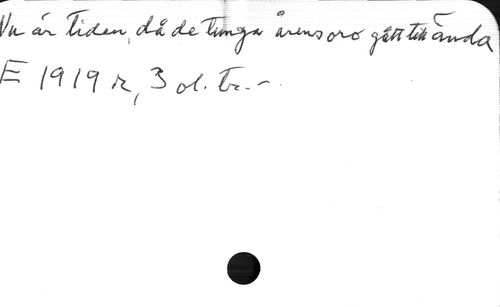 Nu är tiden, då de tunga årens oro gått till ända
E 1919 r, 3 ol. tr. -